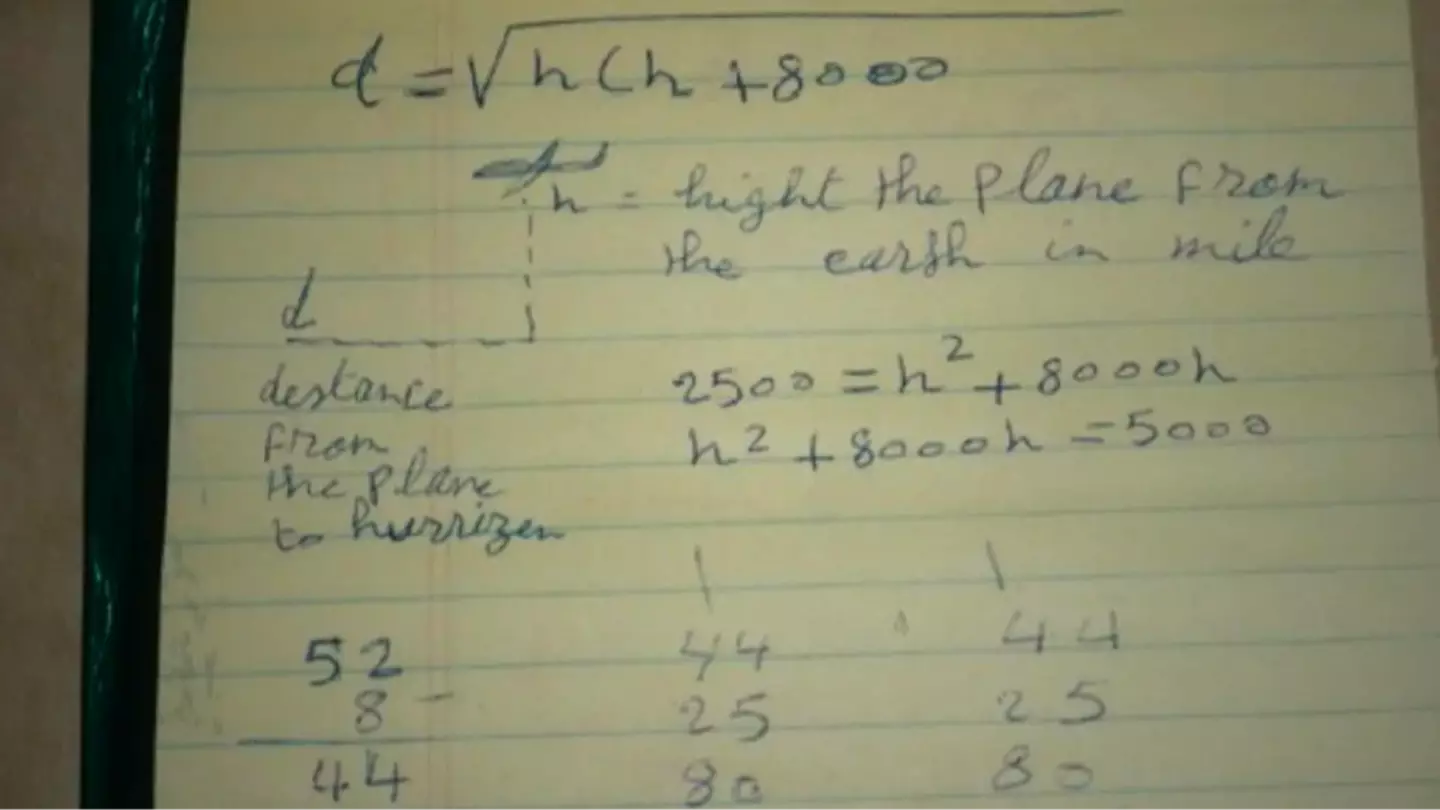 d = √h(h + 8000
h = hight the plane from
the earth in mile
d
destance
from
the plane
to hurrizen
2500 = h² + 8000h
h² + 8000h = 5000
52 44 44
8 - 25 25
44 80 80